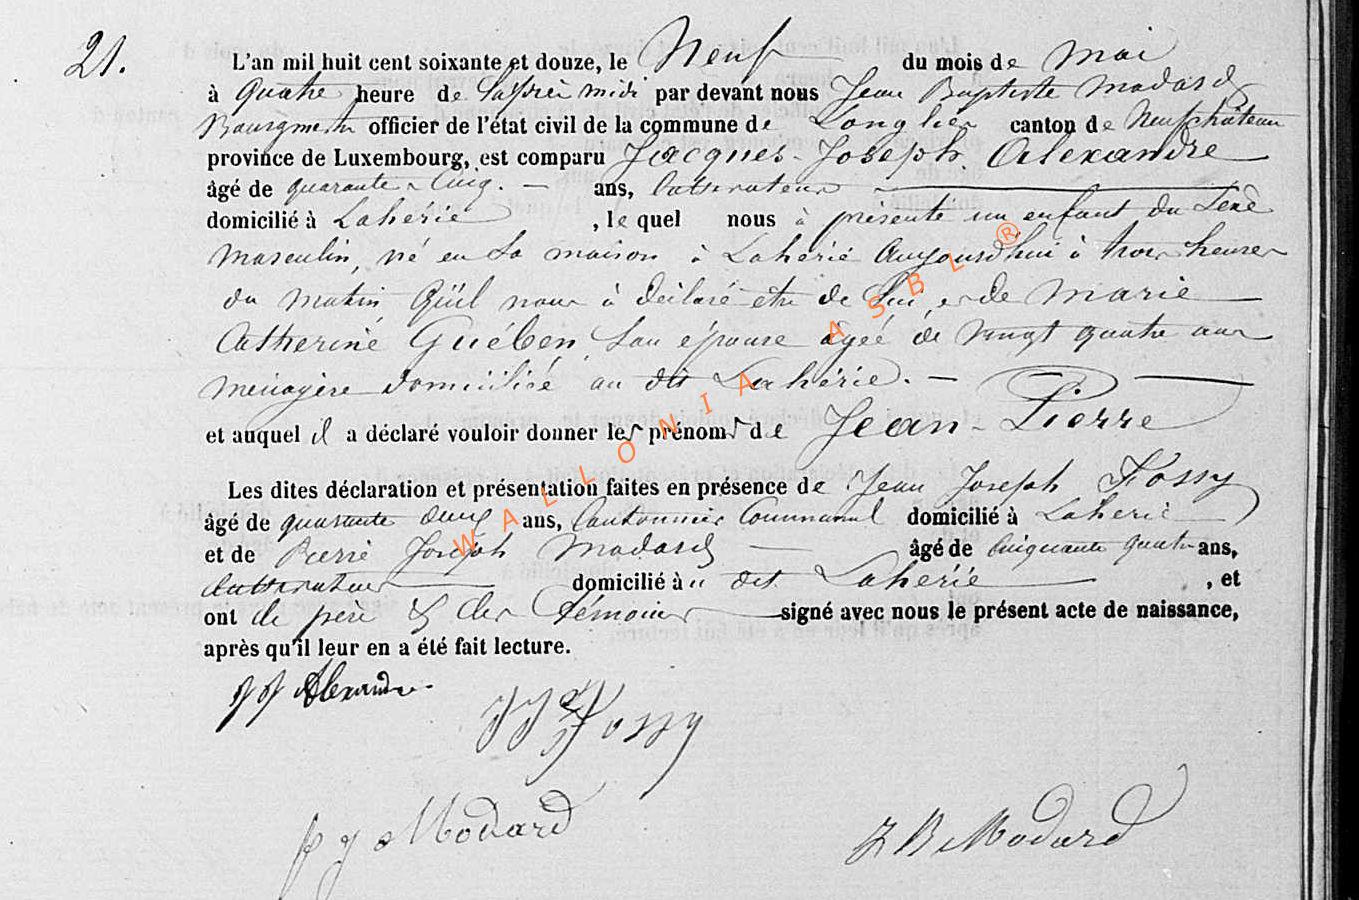 21.
L'an mil huit cent soixante et douze, le Neuf du mois de mai
à quatre heure de l'après midi par devant nous Jean Baptiste Modard
Bourgmestre officier de l'état civil de la commune de Longlier canton de Neufchâteau
province de Luxembourg, est comparu Jacques-Joseph Alexandre
âgé de quarante-Cinq. — ans, Cultivateur
domicilié à Lahérie, le quel nous à présenté un enfant du Sexe
masculin, né en Sa maison à Lahérie Aujourd'hui à trois heures
du matin Qu'il nous à déclaré être de Lui, et de Marie
Catherine Guében, Son épouse âgée de vingt quatre ans
ménagère domiciliée au dit Lahérie. —
et auquel il a déclaré vouloir donner les prénoms de Jean-Pierre
Les dites déclaration et présentation faites en présence de Jean Joseph Fossy
âgé de quarante deux ans, Cantonnier Communal domicilié à Lahérie
et de Pierre Joseph Modard — âgé de Cinquante quatre ans,
Cultivateur domicilié au dit Lahérie, et
ont le père & les témoins signé avec nous le présent acte de naissance,
après qu'il leur en a été fait lecture.
J J Alexandre
J J Fossy
p j Modard
J B Modard
WALLONIA ASBL ®